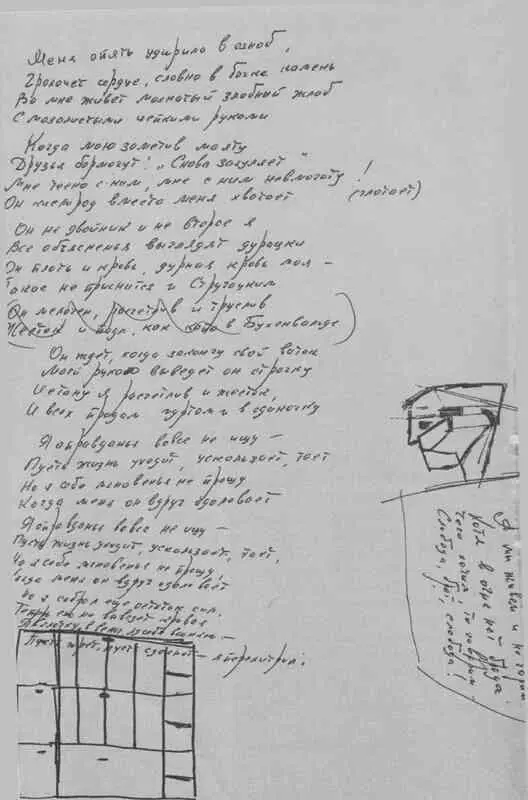 Меня опять ударило в озноб,
Грохочет сердце, словно в бочке камень
Во мне живет мохнатый злобный жлоб
С мозолистыми цепкими руками
Когда мою заметив маяту
Друзья бормочут: „Снова загуляет"
Мне тесно с ним, мне с ним невмоготу!
Он кислород вместо меня хватает (глотает)
Он не двойник и не второе я
Все объясненья выглядят дурацки
Он плоть и кровь, дурная кровь моя –
Такое не приснится и Стругацким
Он мелочен, расчетлив и труслив
Жесток и подл, как в Бухенвальде
Он ждет, когда закончу свой виток
Моей рукою выведет он строчку
И стану я расчетлив и жесток,
И всех продам гуртом и в одиночку
Я оправданья вовсе не ищу –
Пусть жизнь уходит, ускользает, тает
Но я себе мгновенья не прощу
Когда меня он вдруг одолевает
Я оправданья вовсе не ищу –
Пусть жизнь уходит, ускользает, тает,
Но я себе мгновенья не прощу,
Когда меня он вдруг одолевает
Но я собрал еще остаток сил.
Теперь его не вывезет кривая
Я в глотку, в вены яд себе вгоняю –
Пусть жрет, пусть сдохнет – я перехитрил!
А мы живем и не горим
Хотя в огне нет брода,
Чего хотим, то говорим
Свобода, брат, свобода!